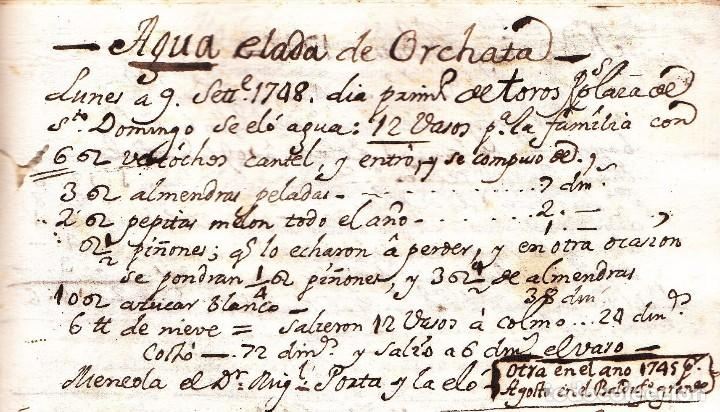 — Agua elada de Orchata —
Lunes a 9. Sett.e 1748. dia prim.o de toros plaza de
S.to Domingo se eló agua: 12 Vasos p.a la familia con
6 oz vscochos cantel, y entró, y se compuso de,
3 oz almendras peladas - . . . . . . . . . 7 din.s
2 oz pepitas melon todo el año - . . . . . . 2. —
oz ½ piñones; q.e lo echaron á perder, y en ótra ocasion
se pondran ¼ oz piñones, y 3 oz ½ de almendras
10 oz azucar blanco - 38 din.s
6 tt de nieve = salieron 12 Vasos á colmo . . . 24 din.s
Costó — 72 din.s y salió a 6 din.s el vaso —
Meneola el D.r Mig.l Porta y la eló -
Otra en el ano 1745
Agosto en el grande